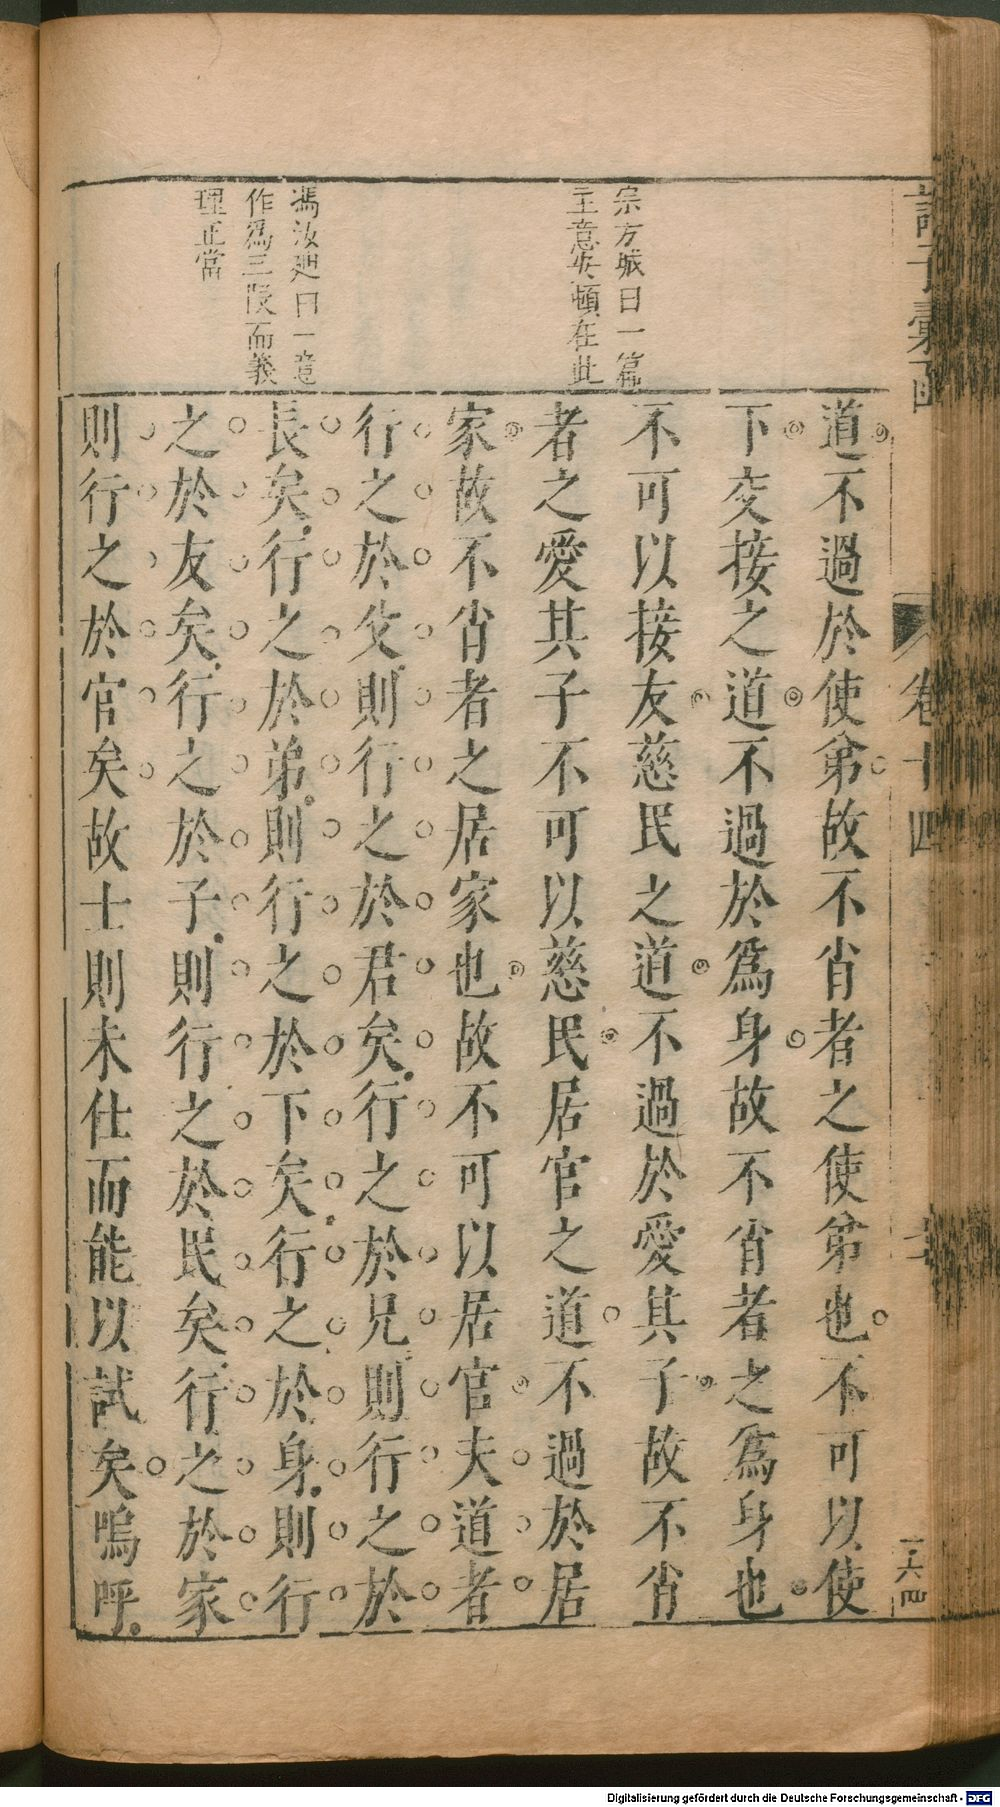 諸子彙函
卷十四
宗方城曰一篇
主意安頓在此
馮汝迪曰一意
作爲三段而義
理正當
道不過於使弟故不肖者之使弟也不可以使
下交接之道不過於爲身故不肖者之爲身也
不可以接友慈民之道不過於愛其子故不肖
者之愛其子不可以慈民居官之道不過於居
家故不肖者之居家也故不可以居官夫道者
行之於父則行之於君矣行之於兄則行之於
長矣行之於弟則行之於下矣行之於身則行
之於友矣行之於子則行之於民矣行之於家
則行之於官矣故士則未仕而能以試矣嗚呼
Digitalisierung gefördert durch die Deutsche Forschungsgemeinschaft - DFG